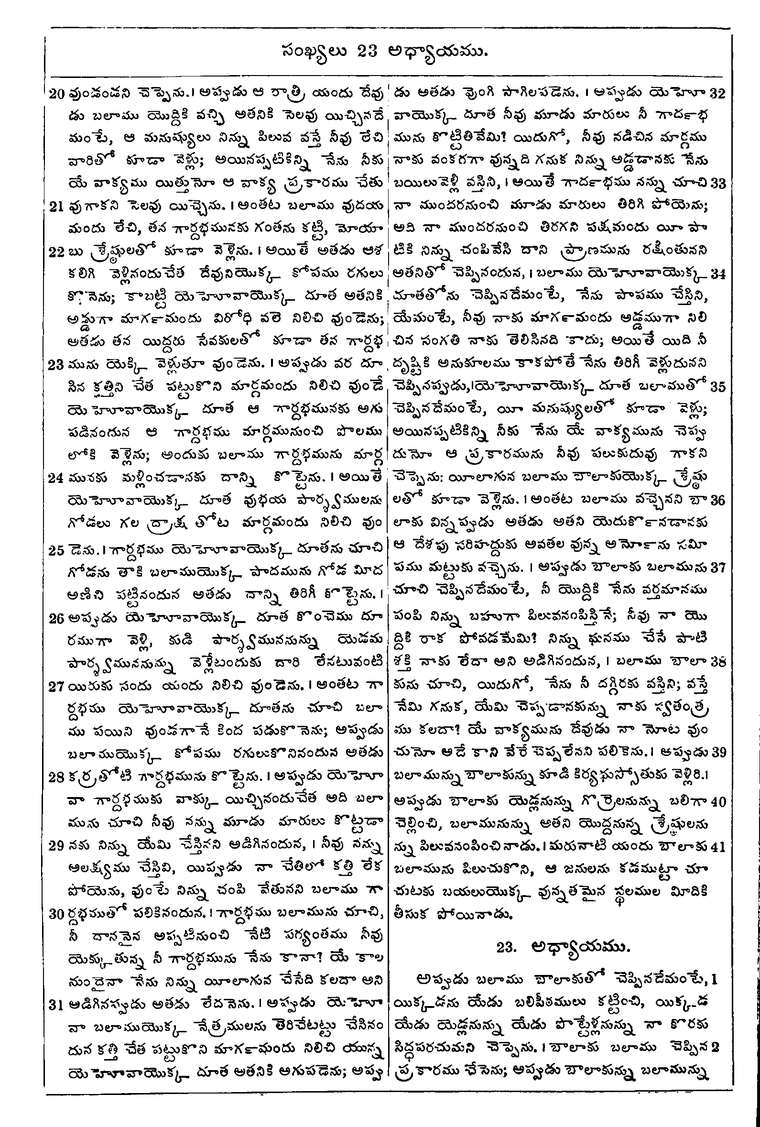 సంఖ్యలు 23 అధ్యాయము.
20 వుండండని చెప్పెను. । అప్పుడు ఆ రాత్రి యందు దేవు
డు బలాము యొద్దికి వచ్చి అతనికి సెలవు యిచ్చినదే
మంటే, ఆ మనుష్యులు నిన్ను పిలువ వస్తే నీవు లేచి
వారితో కూడా వెళ్లు; అయినప్పటికిన్ని నేను నీకు
యే వాక్యము యిత్తునో ఆ వాక్య ప్రకారము చేతు
21 వుగాకని సెలవు యిచ్చెను. । అంతట బలాము వుదయ
మందు లేచి, తన గార్దభమునకు గంతను కట్టి, మోయా
22 బు శ్రేష్ఠులతో కూడా వెళ్లెను. । అయితే అతడు ఆశ
కలిగి వెళ్లినందుచేత దేవునియొక్క కోపము రగులు
కొనెను; కాబట్టి యెహోవాయొక్క దూత అతనికి
అడ్డుగా మార్గమందు విరోధి వలె నిలిచి వుండెను;
అతడు తన యిద్దరు సేవకులతో కూడా తన గార్దభ
23 మును యెక్కి వెళ్లుతూ వుండెను. । అప్పుడు వర దూ
సిన కత్తిని చేత పట్టుకొని మార్గమందు నిలిచి వుండే
యెహోవాయొక్క దూత ఆ గార్దభమునకు అగు
పడినందున ఆ గార్దభము మార్గమునుంచి పొలము
లోకి వెళ్లెను; అందుకు బలాము గార్దభమును మార్గ
24 మునకు మళ్లించడానకు దాన్ని కొట్టెను. । అయితే
యెహోవాయొక్క దూత వుభయ పార్శ్వములను
గోడలు గల ద్రాక్ష తోట మార్గమందు నిలిచి వుం
25 డెను. । గార్దభము యెహోవాయొక్క దూతను చూచి
గోడను తాకి బలాముయొక్క పాదమును గోడ మీద
అణిచి పట్టినందున అతడు దాన్ని తిరిగీ కొట్టెను. ।
26 అప్పుడు యెహోవాయొక్క దూత కొంచెము దూ
రముగా వెళ్లి, కుడి పార్శ్వముననున్ను యెడమ
పార్శ్వముననున్ను వెళ్లేటందుకు దారి లేనటువంటి
27 యిరుకు సందు యందు నిలిచి వుండెను. । అంతట గా
ర్దభము యెహోవాయొక్క దూతను చూచి బలా
ము పయిని వుండగానే కింద పడుకొనెను; అప్పుడు
బలాముయొక్క కోపము రగులుకొనినందున అతడు
28 కర్రతోటి గార్దభమును కొట్టెను. । అప్పుడు యెహో
వా గార్దభముకు వాక్కు యిచ్చినందుచేత అది బలా
మును చూచి నీవు నన్ను మూడు మారులు కొట్టడా
29 నకు నిన్ను యేమి చేస్తినని అడిగినందున, । నీవు నన్ను
ఆలక్ష్యము చేస్తివి, యిప్పుడు నా చేతిలో కత్తి లేక
పోయెను, వుంటే నిన్ను చంపి వేతునని బలాము గా
30 ర్దభముతో పలికినందున. । గార్దభము బలామును చూచి,
నీ దాననైన అప్పటినుంచి నేటి పర్యంతము నీవు
యెక్కుతున్న నీ గార్దభమును నేను కానా? యే కాల
నుందైనా నేను నిన్ను యీలాగున చేసేది కలదా అని
31 ఆడిగినప్పుడు అతడు లేదనెను. । అప్పుడు యెహో
వా బలాముయొక్క నేత్రములను తెరిచేటట్టు చేసినం
దున కత్తి చేత పట్టుకొని మార్గమందు నిలిచి యున్న
యెహోవాయొక్క దూత అతనికి అగుపడెను; అప్పు
డు అతడు వుంగి సాగిలపడెను. । అప్పుడు యెహో 32
వాయొక్క దూత నీవు మూడు మారులు నీ గార్దభ
మును కొట్టితివేమి? యిదుగో, నీవు నడిచిన మార్గము
నాకు వంకరగా వున్నది గనుక నిన్ను అడ్డడానకు నేను
బయిలువెళ్లి వస్తిని, । అయితే గార్దభము నన్ను చూచి 33
నా ముందరనుంచి మూడు మారులు తిరిగి పోయెను;
అది నా ముందరనుంచి తిరగని పక్షమందు యీ పా
టికి నిన్ను చంపివేసి దాని ప్రాణమును రక్షింతునని
అతనితో చెప్పినందున, । బలాము యెహోవాయొక్క 34
దూతతోను చెప్పినదేమంటే, నేను పాపము చేస్తిని,
యేమంటే, నీవు నాకు మార్గమందు అడ్డముగా నిలి
చిన సంగతి నాకు తెలిసినది కాదు; అయితే యిది నీ
దృష్టికి అనుకూలము కాకపోతే నేను తిరిగీ వెళ్లుదునని
చెప్పినప్పుడు, । యెహోవాయొక్క దూత బలాముతో 35
చెప్పినదేమంటే, యీ మనుష్యులతో కూడా వెళ్లు;
అయినప్పటికిన్ని నీకు నేను యే వాక్యమును చెప్పు
దునో ఆ ప్రకారమును నీవు పలుకుదువు గాకని
చెప్పెను: యీలాగున బలాము బాలాకుయొక్క శ్రేష్ఠు
లతో కూడా వెళ్లెను. । అంతట బలాము వచ్చెనని బా 36
లాకు విన్నప్పుడు అతడు అతని యెదుర్కొనడానకు
ఆ దేశపు సరిహద్దుకు అవతల వున్న అర్నోను సమీ
పము మట్టుకు వచ్చెను. । అప్పుడు బాలాకు బలామును 37
చూచి చెప్పినదేమంటే, నీ యొద్దికి నేను వర్తమానము
పంపి నిన్ను బహుగా పిలువనంపిస్తినే; నీవు నా యొ
ద్దికి రాక పోవడమేమి? నిన్ను ఘనము చేసే పాటి
శక్తి నాకు లేదా అని అడిగినందున, । బలాము బాలా 38
కును చూచి, యిదుగో, నేను నీ దగ్గిరకు వస్తిని; వస్తే
నేమి గనుక, యేమి చెప్పడానకున్ను నాకు స్వతంత్ర
ము కలదా? యే వాక్యమును దేవుడు నా నోట వుం
చునో ఆదే కాని వేరే చెప్పలేనని పలికెను. । అప్పుడు 39
బలామున్ను బాలాకున్ను కూడి కిర్యథుస్సోతుకు వెళ్లిరి. ।
అప్పుడు బాలాకు యెడ్లనున్ను గొర్రెలనున్ను బలిగా 40
చెల్లించి, బలామునున్ను అతని యొద్దనున్న శ్రేష్ఠులను
న్ను పిలువనంపించినాడు. । మరునాటి యందు బాలాకు 41
బలామును పిలుచుకొని, ఆ జనులను కడముట్టా చూ
చుటకు బయలుయొక్క వున్నతమైన స్థలముల మీదికి
తీసుక పోయినాడు.
23. అధ్యాయము.
అప్పుడు బలాము బాలాకుతో చెప్పినదేమంటే, 1
యిక్కడను యేడు బలిపీఠములు కట్టించి, యిక్కడ
యేడు యెడ్లనున్ను యేడు పొట్టేళ్లనున్ను నా కొరకు
సిద్ధపరచుమని చెప్పెను. । బాలాకు బలాము చెప్పిన 2
ప్రకారము చేసెను; అప్పుడు బాలాకున్ను బలామున్ను